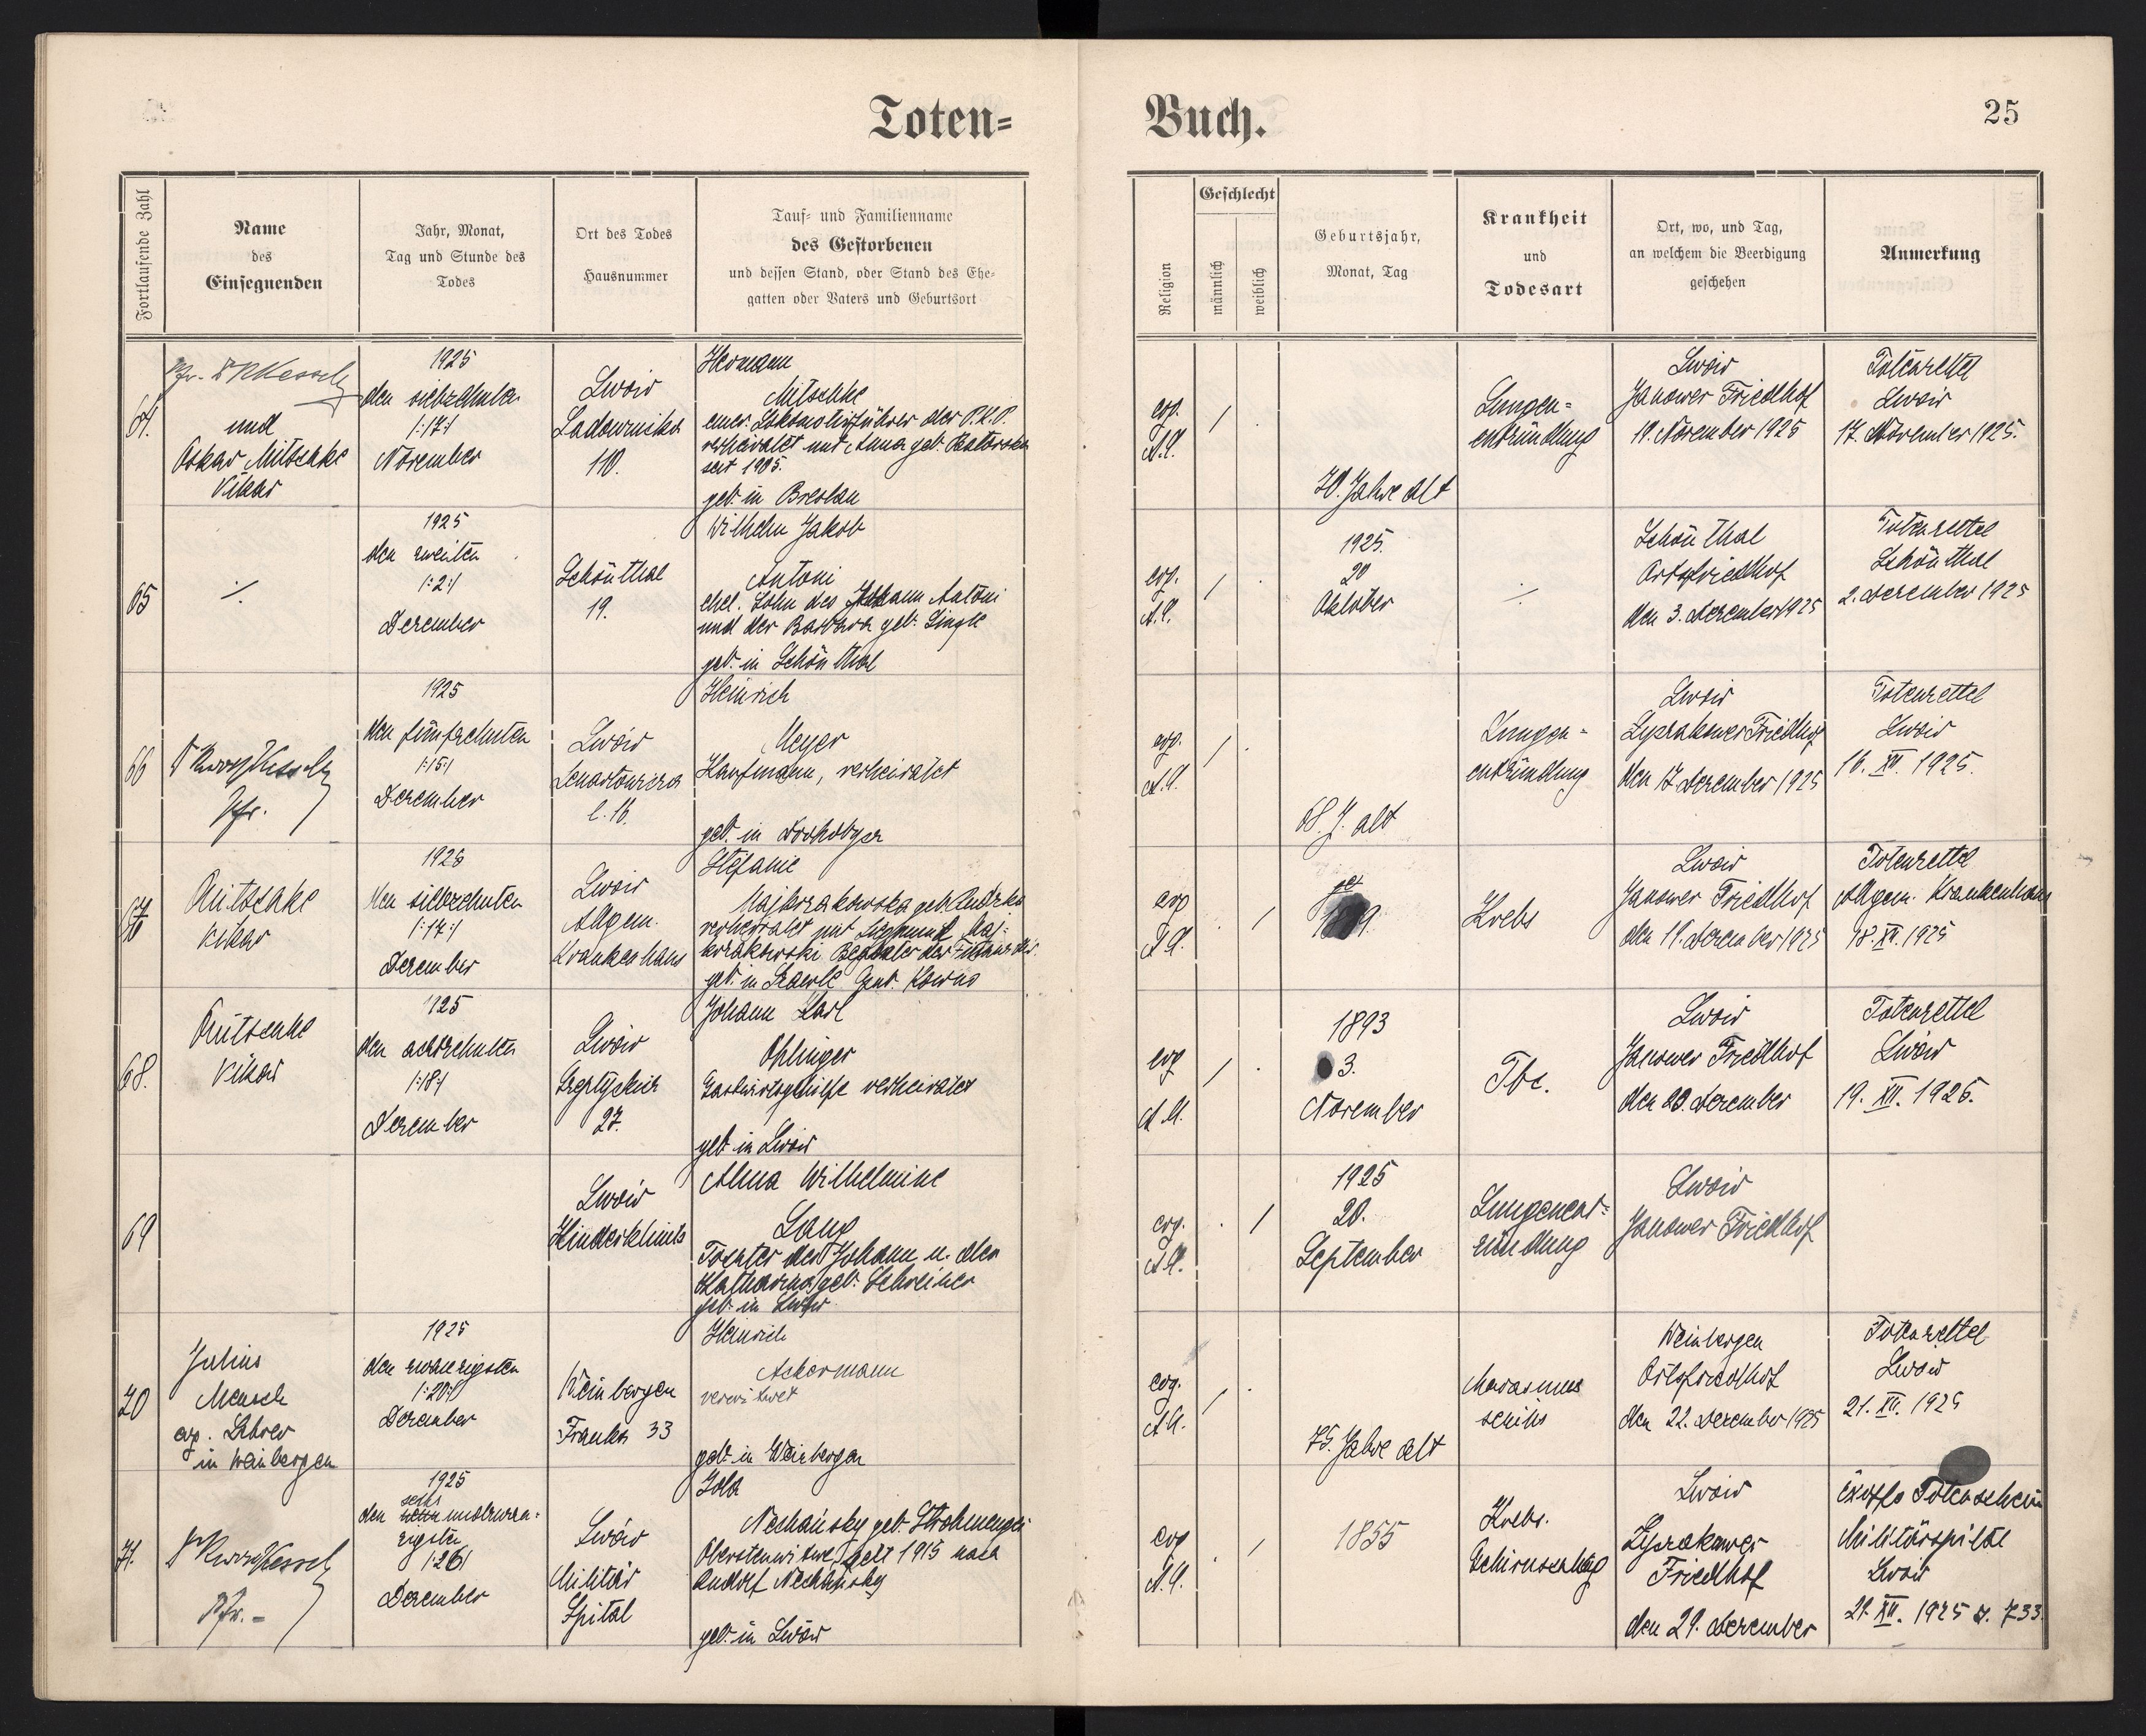 Toten-
Buch.
25
Fortlaufende Zahl
Name
des
Einsegnenden
Jahr, Monat,
Tag und Stunde des
Todes
Ort des Todes
Hausnummer
Tauf- und Familienname
des Gestorbenen
und dessen Stand, oder Stand des Ehe-
gatten oder Vaters und Geburtsort
Religion
Geschlecht
männlich
weiblich
Geburtsjahr,
Monat, Tag
Krankheit
und
Todesart
Ort, wo, und Tag,
an welchem die Beerdigung
geschehen
Anmerkung
64.
Pfr. Kesselring
und
Oskar Mitschke
Vikar
1925
den siebzehnten
/:17:/
November
Lwów
Ladownicka
110.
Hermann
Mitschke
emer. Lokomotivführer der P.K.P.
verheiratet mit Anna geb.
seit 1905.
geb. in Breslau
evg.
A.C.
/
70. Jahre alt
Lungen-
entzündung
Lwów
Janower Friedhof
19. November 1925
Totenzettel
Lwów
17. November 1925.
65
./.
1925
den zweiten
/:2:/
Dezember
Schönthal
19.
Wilhelm Jakob
Antoni
ehel. Sohn des Johann Antoni
und der Barbara geb. Single
geb. in Schönthal
evg.
A.C.
/
1925.
20
Oktober
./.
Schönthal
Ortsfriedhof
den 3. Dezember 1925
Totenzettel
Schönthal
2. Dezember 1925
66
Kesselring
Pfr.
1925
den fünfzehnten
/:15:/
Dezember
Lwów
Lenartowicza
l. 16.
Heinrich
Meyer
Kaufmann, verheiratet
geb. in Drohobycz
evg.
A.C.
/
68. J. alt
Lungen-
entzündung
Lwów
Lyczakower Friedhof
den 17. Dezember 1925
Totenzettel
Lwów
16. XII. 1925.
67
Mitschke
Vikar
1925
den siebzehnten
/:17:/
Dezember
Lwów
Allgem.
Krankenhaus
Stefanie
Majkrzakowska geb.
verheiratet mit Zygmunt Maj-
krzakowski
geb. in Gouv. Kowno
evg
A.C.
/
Krebs
Lwów
Janower Friedhof
den 19. Dezember 1925
Totenzettel
Allgem. Krankenhaus
18. XII. 1925
68.
Mitschke
Vikar
1925
den achtzehnten
/:18:/
Dezember
Lwów
27.
Johann Karl
Ohlinger
Gastwirtsgehilfe verheiratet
geb. in Lwów
evg
A.C.
/
1893
3.
November
Tbc.
Lwów
Janower Friedhof
den 20. Dezember
Totenzettel
Lwów
19. XII. 1925.
69
Lwów
Kinderklinik
Alma Wilhelmine
Lang
Tochter des Johann u. der
Katharina geb. Schreiner
geb. in Lwów
evg.
A.C.
/
1925
20.
September
Lungenent-
zündung
Lwów
Janower Friedhof
70
Julius
Mensch
evg. Lehrer
in Weinbergen
1925
den zwanzigsten
/:20:/
Dezember
Weinbergen
Franka 33
Heinrich
Ackermann
verwitwet
geb. in Weinbergen
evg.
A.C.
/
75. Jahre alt
Marasmus
senilis
Weinbergen
Ortsfriedhof
den 22. Dezember 1925
Totenzettel
Lwów
21. XII. 1925
71.
Kesselring
Pfr.
1925
sechs
den undzwan-
zigsten
/:26:/
Dezember
Lwów
Militär
Spital
Ida
Nechansky geb. Strohmenger
Oberstenwitwe, seit 1915 nach
Rudolf Nechansky
geb. in Lwów
evg
A.C.
/
1855
Krebs.
Gehirnschlag
Lwów
Lyczakower
Friedhof
den 29. Dezember
Exoffo Totenschein
Militärspital
Lwów
29. XII. 1925 z. 733.